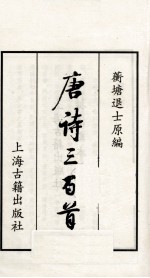 蘅塘退士原編
唐诗三百首
上海古籍出版社